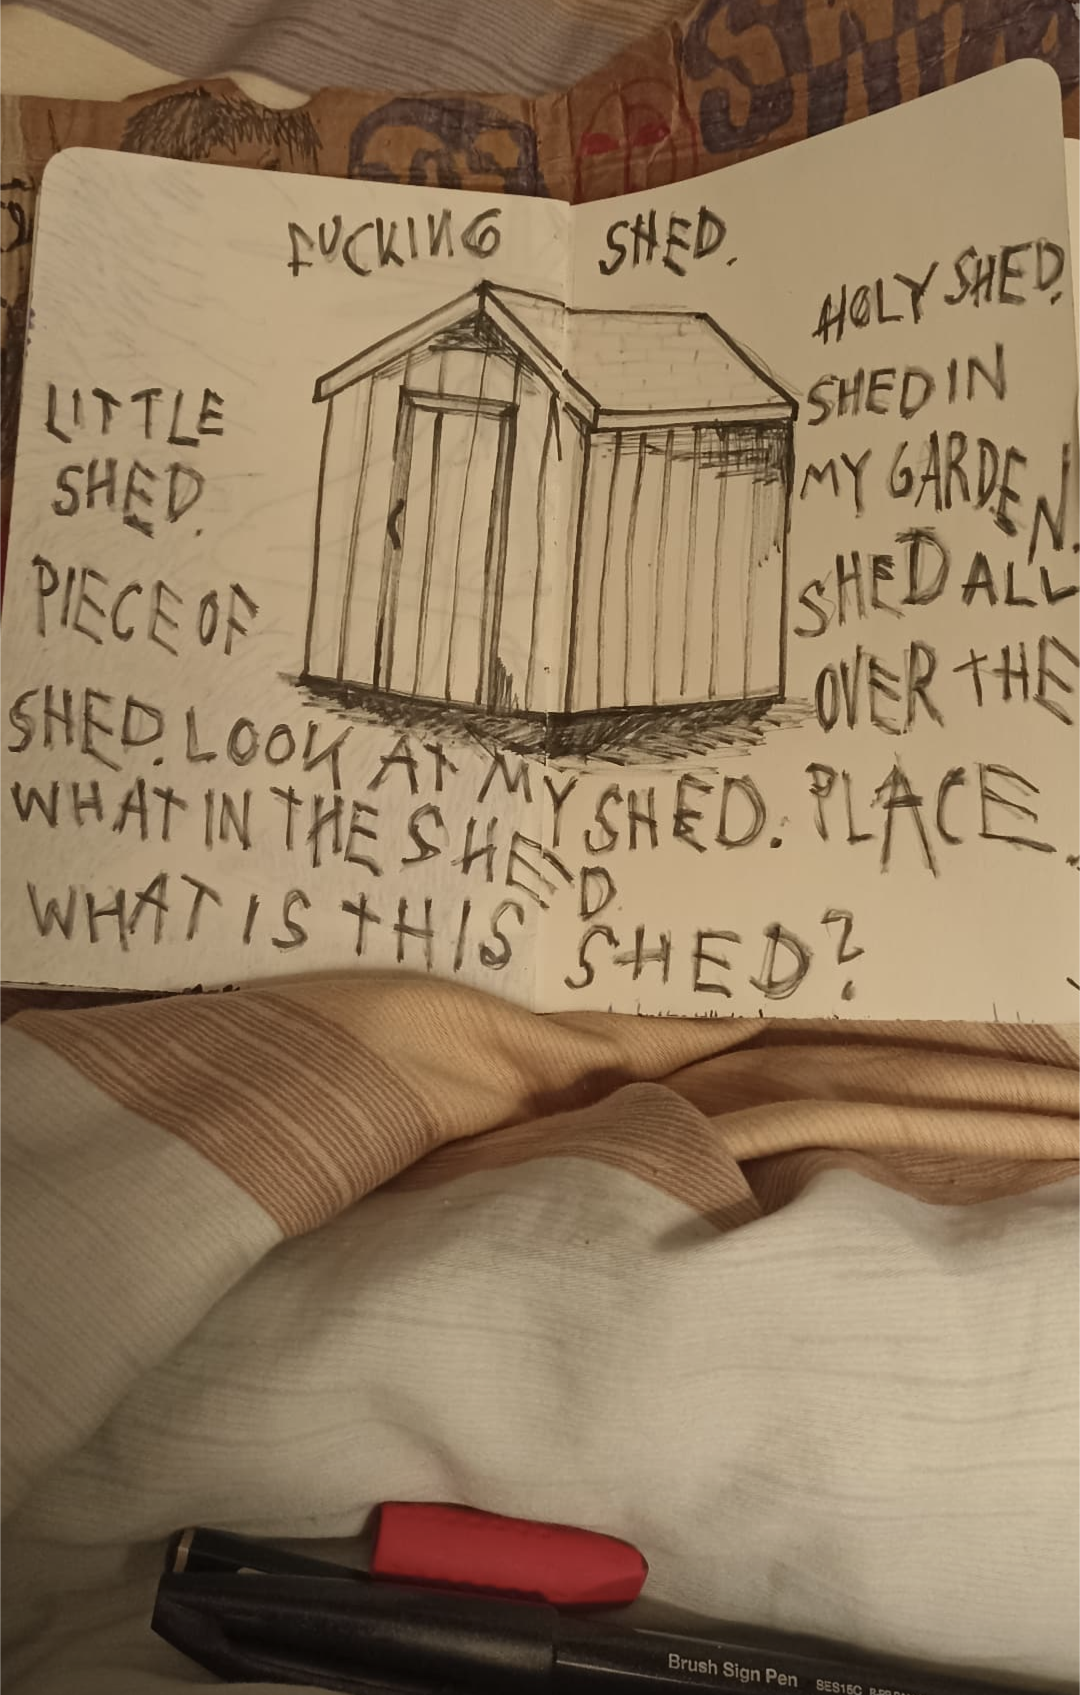 FUCKING SHED.
LITTLE
SHED.
PIECE OF
SHED. LOOK AT MY SHED.
WHAT IN THE SHED
WHAT IS THIS SHED?
HOLY SHED.
SHED IN
MY GARDEN.
SHED ALL
OVER THE
PLACE.
Brush Sign Pen SES15C